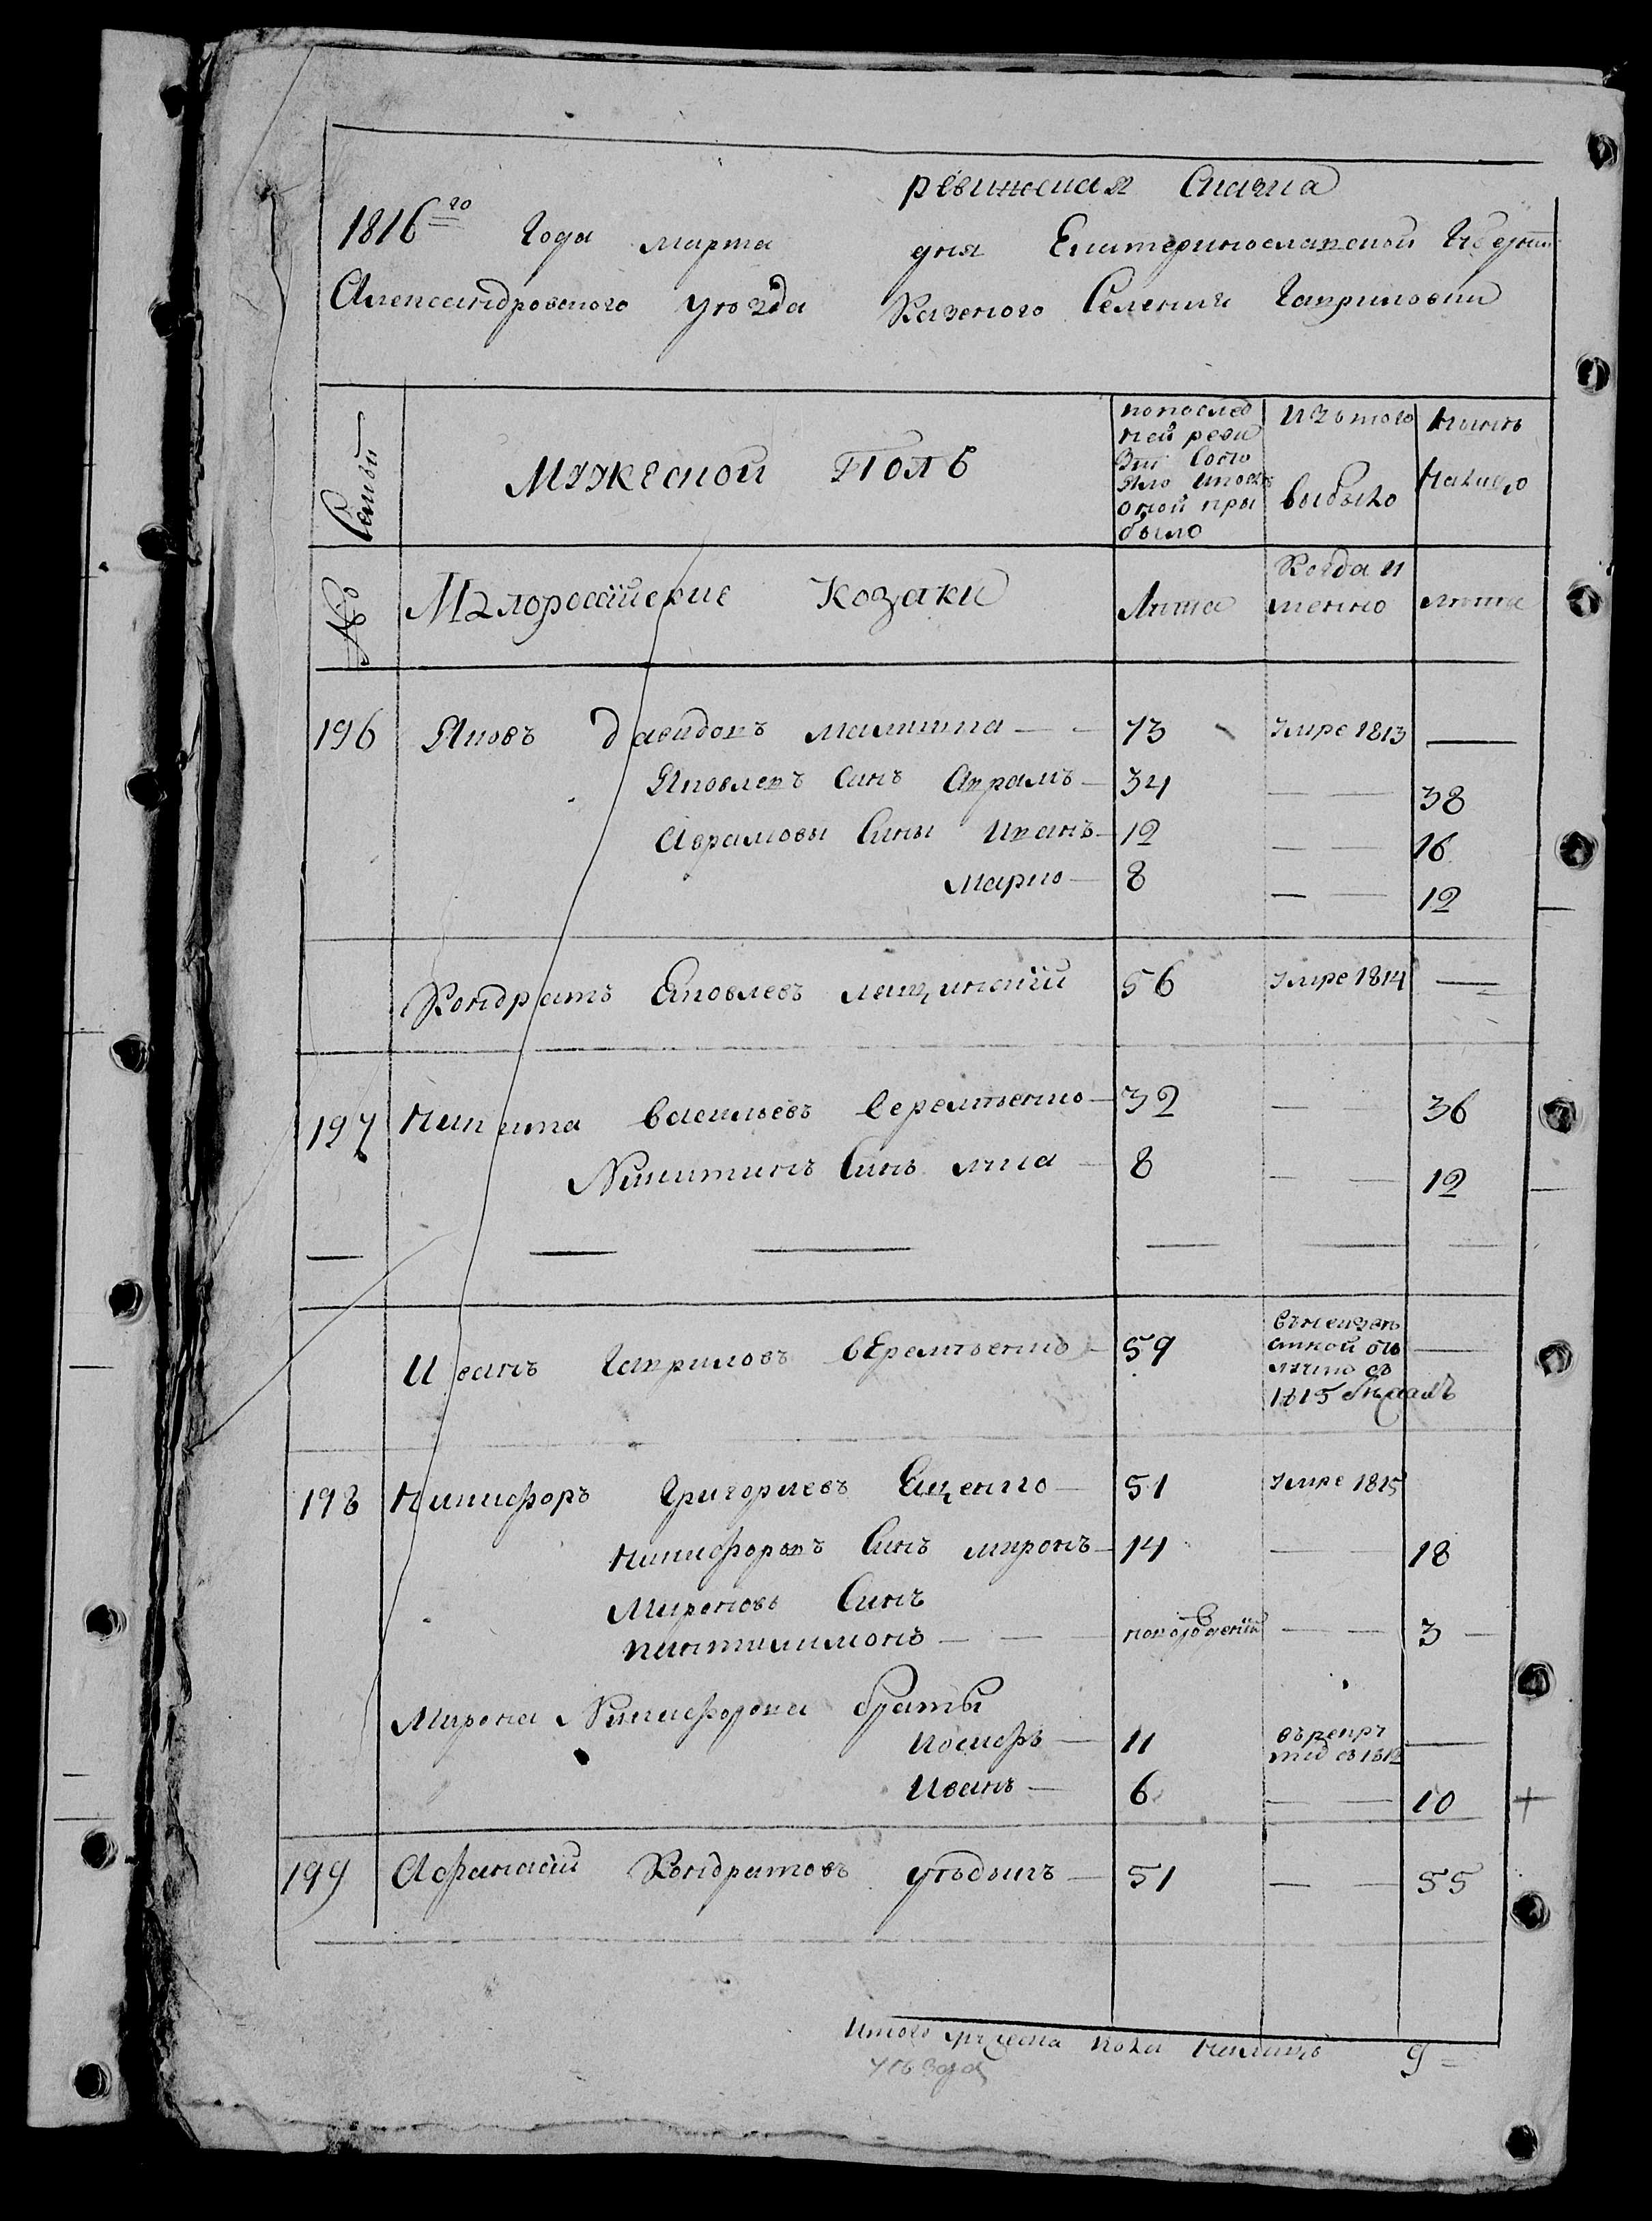 ревижская Сказка
1816го Года марта дня Екатеринославской Губерни
Александровского уюзда Казеного Селения Гавриловки
Семьи
Мужеской Полъ
попослед
ней реви
зии Состо
яло ипосль
оной при
было
Изътого
выбыло
Нынъ
Налицо
№
Малоросийские Козаки
Лъта
Когда и
менно
лъта
196 Яковъ давидовъ 73 Умре 1813 —
Яковлевъ Синъ Аврамъ — 34 — — 38
Аврамовы Сины Иванъ — 12 — — 16
Марко — 8 — — 12
Кондратъ Яковлевъ лещинский 56 Умре 1814 —
197 Никита васильевъ веремъенко — 32 — 36
Никитинъ Синъ — 8 — — 12
Иванъ Гавриловъ вЕремъенко — 59 —
1815
198 Никифоръ Григориевъ Ещенко — 51 Умре 1815
Никифоровъ Синъ миронъ — 14 — — 18
Мироновъ Синъ
пантилимонъ — — — новорожденный — — 3 —
Мирона Никифорова браты
Иосифъ — 11 въ рекрт —
Иванъ — 6 — — 10 +
199 Афанасий Кондратовъ — 51 — — 55
Итого мужеска пола налицо 9 =